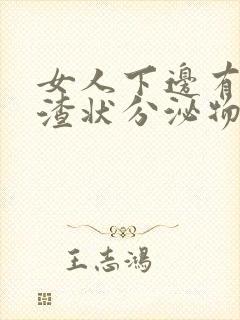 女人下邊有
渣狀分泌物
王志鴻